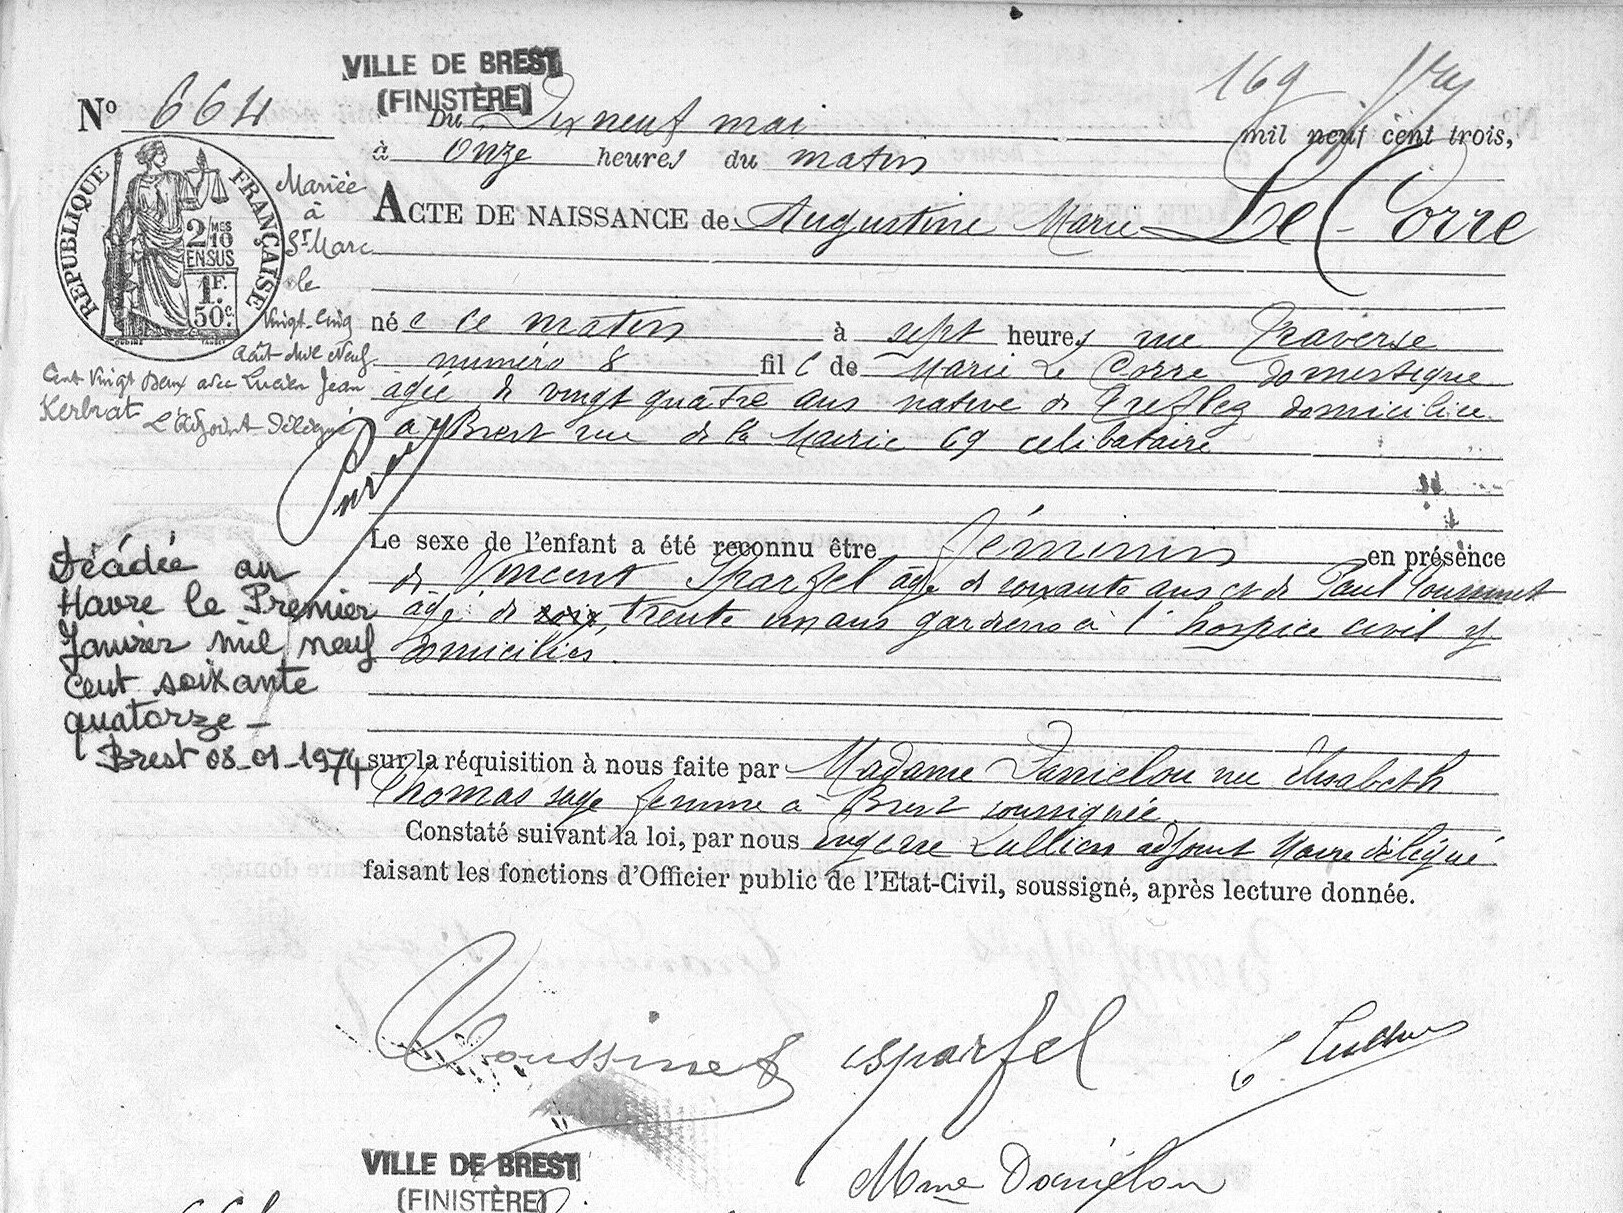 VILLE DE BREST
(FINISTÈRE)
169
N° 664
Du Dix neuf mai mil neuf cent trois,
à onze heures du matin
ACTE DE NAISSANCE de Augustine Marie Le Corre
RÉPUBLIQUE FRANÇAISE
2/10 MES
EN SUS
1F.
50c.
Mariée
à
St Marc
le
Vingt-Cinq
Août Mil Neuf
Cent Vingt Deux avec Lucien Jean
Kerbrat L'Adjoint Délégué
née ce matin à sept heures rue Traverse
numéro 8 fille de Marie Le Corre domestique
âgée de vingt quatre ans native de Treflez domiciliée
à Brest rue de la Mairie 69 célibataire
Le sexe de l'enfant a été reconnu être féminin en présence
de Vincent Sparfel âgé de soixante ans et de Paul Toussinet
âgé de soix trente un ans gardiens à l'hospice civil y
domiciliés.
Décédée au
Havre le Premier
Janvier mil neuf
cent soixante
quatorze -
Brest 08-01-1974
sur la réquisition à nous faite par Madame Daniélou née Elisabeth
Thomas sage femme à Brest soussignée
Constaté suivant la loi, par nous Eugène Lullien adjoint Maire délégué
faisant les fonctions d'Officier public de l'État-Civil, soussigné, après lecture donnée.
Toussinet sparfel E. Lullien
Mme Daniélou
VILLE DE BREST
(FINISTÈRE)